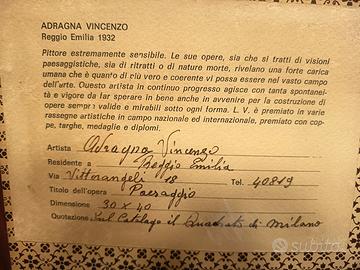 ADRAGNA VINCENZO
Reggio Emilia 1932
Pittore estremamente sensibile. Le sue opere, sia che si tratti di visioni
paesaggistiche, sia di ritratti o di nature morte, rivelano una forte carica
umana che è quanto di più vero e coerente vi possa essere nel vasto campo
dell'arte. Questo artista in continuo progresso agisce con tanta spontanei-
tà e vigore da far sperare in bene anche in avvenire per la costruzione di
opere sempre valide e mirabili sotto ogni forma. L. V. è premiato in varie
rassegne artistiche in campo nazionale ed internazionale, premiato con cop-
pe, targhe, medaglie e diplomi.
Artista Adragna Vincenzo
Residente a Reggio Emilia
Via Vittorangeli 18 Tel. 40819
Titolo dell'opera Paesaggio
Dimensione 30 x 40
Quotazione Sul Catalogo il Quadrato di Milano
subito